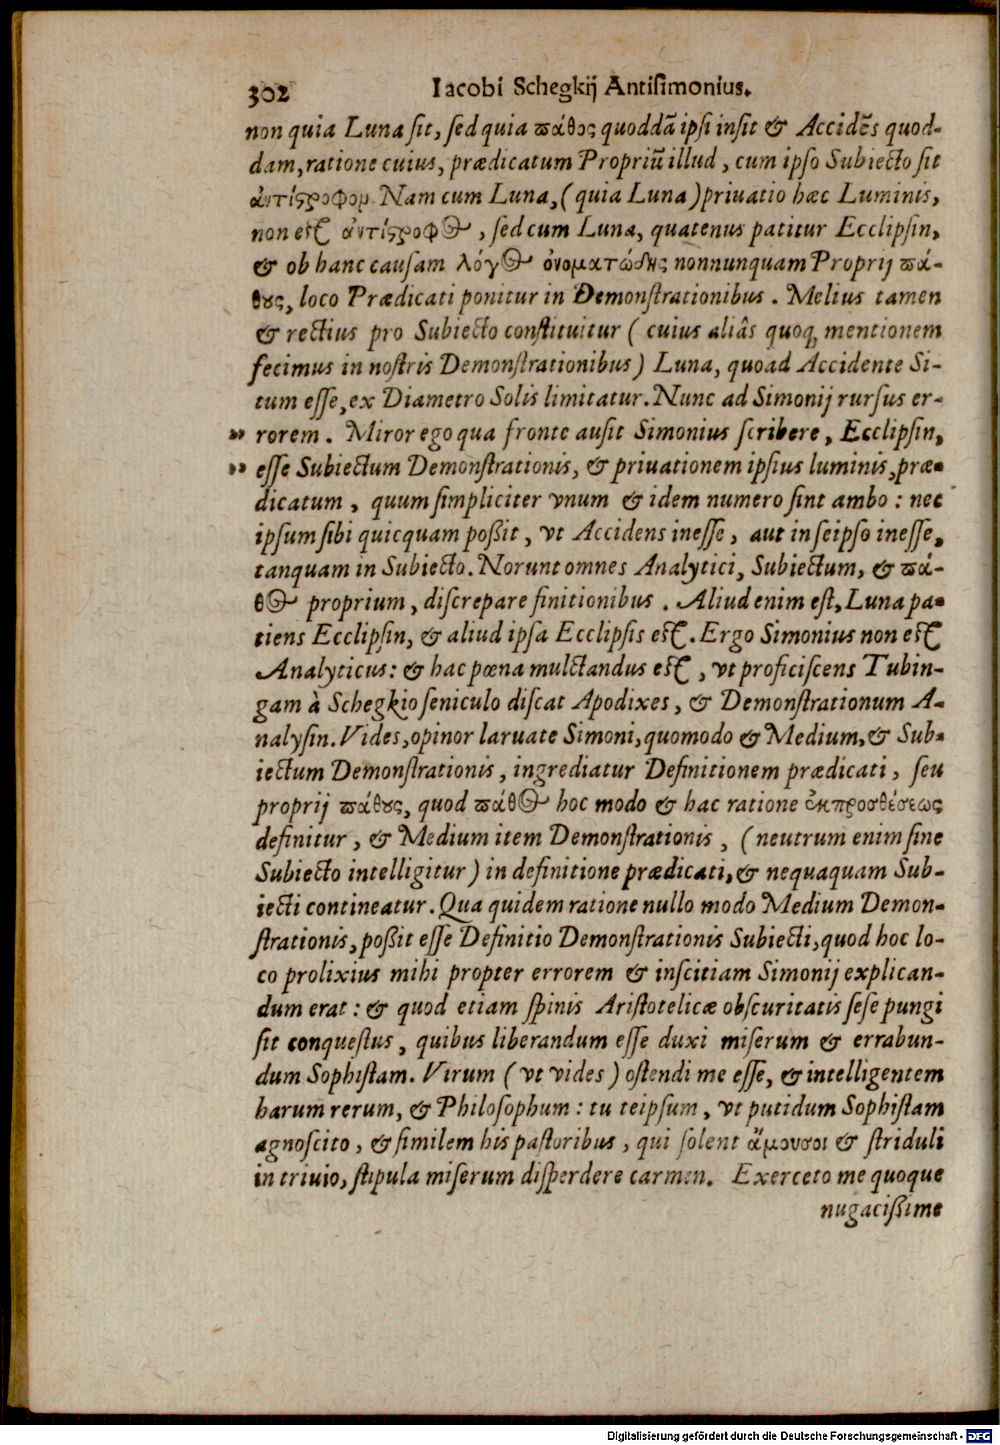 302 Iacobi Schegkij Antisimonius.
non quia Luna sit, sed quia πάθος quoddā ipsi insit & Accidēs quod-
dam, ratione cuius, prædicatum Propriũ illud, cum ipso Subiecto sit
ἀντίςροφομ. Nam cum Luna, (quia Luna) priuatio hæc Luminis,
non est ἀντίςροφος, sed cum Luna, quatenus patitur Ecclipsin,
& ob hanc causam λόγος ὀνοματώδης nonnunquam Proprij πά-
θȣς, loco Prædicati ponitur in Demonstrationibus. Melius tamen
& rectius pro Subiecto constituitur (cuius aliâs quoq; mentionem
fecimus in nostris Demonstrationibus) Luna, quoad Accidente Si-
tum esse, ex Diametro Solis limitatur. Nunc ad Simonij rursus er-
» rorem. Miror ego qua fronte ausit Simonius scribere, Ecclipsin,
» esse Subiectum Demonstrationis, & priuationem ipsius luminis, præ-
dicatum, quum simpliciter vnum & idem numero sint ambo: nec
ipsum sibi quicquam poßit, vt Accidens inesse, aut in seipso inesse,
tanquam in Subiecto. Norunt omnes Analytici, Subiectum, & πά-
θος proprium, discrepare finitionibus. Aliud enim est, Luna pa-
tiens Ecclipsin, & aliud ipsa Ecclipsis est. Ergo Simonius non est
Analyticus: & hac pœna mulctandus est, vt proficiscens Tubin-
gam à Schegkio seniculo discat Apodixes, & Demonstrationum A-
nalysin. Vides, opinor laruate Simoni, quomodo & Medium, & Sub-
iectum Demonstrationis, ingrediatur Definitionem prædicati, seu
proprij πάθȣς, quod πάθος hoc modo & hac ratione ἐκπροσθέσεως
definitur, & Medium item Demonstrationis, (neutrum enim sine
Subiecto intelligitur) in definitione prædicati, & nequaquam Sub-
iecti contineatur. Qua quidem ratione nullo modo Medium Demon-
strationis, poßit esse Definitio Demonstrationis Subiecti, quod hoc lo-
co prolixius mihi propter errorem & inscitiam Simonij explican-
dum erat: & quod etiam spinis Aristotelicæ obscuritatis sese pungi
sit conquestus, quibus liberandum esse duxi miserum & errabun-
dum Sophistam. Virum (vt vides) ostendi me esse, & intelligentem
harum rerum, & Philosophum: tu teipsum, vt putidum Sophistam
agnoscito, & similem his pastoribus, qui solent ἄμουσοι & striduli
in triuio, stipula miserum disperdere carmen. Exerceto me quoque
nugacißime
Digitalisierung gefördert durch die Deutsche Forschungsgemeinschaft - DFG